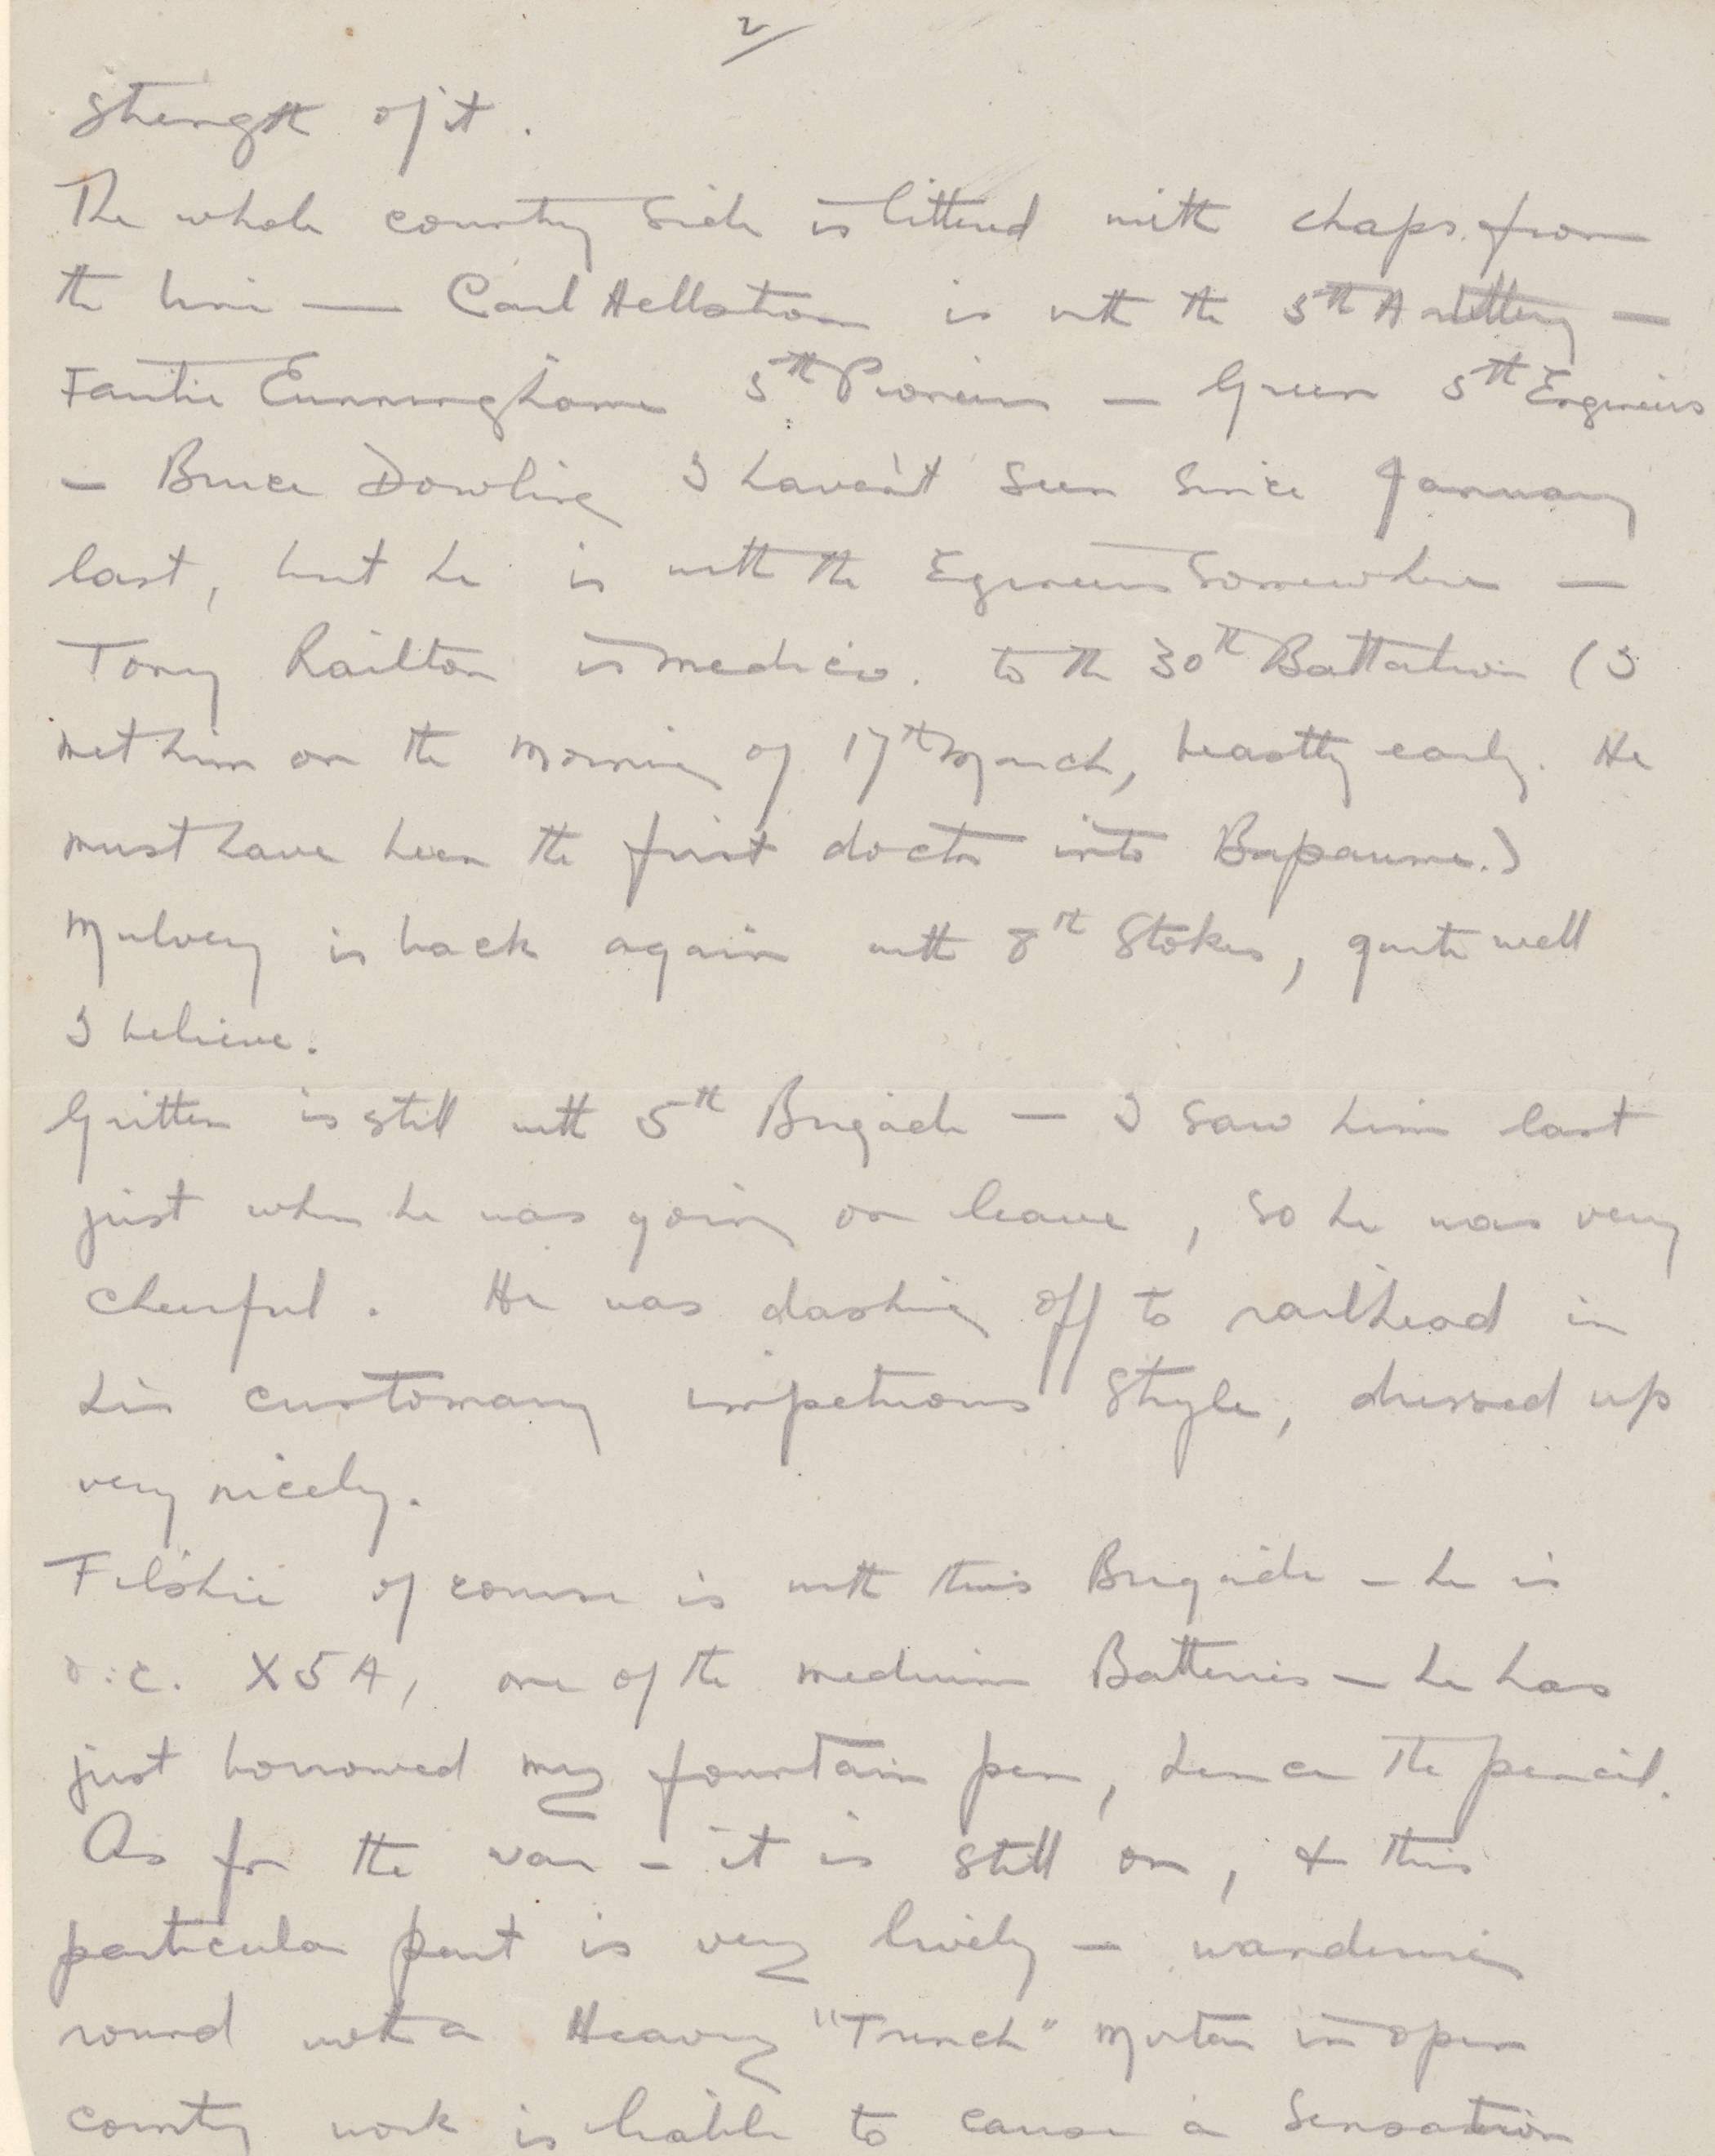 2/
strength of it.
The whole country side is littered with chaps from
the Uni — Carl Hellstrom is with the 5th Artillery —
Cunninghame 5th Pioneers — Green 5th Engineers
— Bruce Dowling I haven't seen since January
last, but he is with the Egineers Somewhere —
Tony Railton is medico. to the 30th Battalion (I
met him on the morning of 17th March, beastly early. He
must have been the first doctor into Bapaume.)
Mulvey is back again with 8th Stokes, quite well
I believe.
Gritten is still with 5th Brigade — I saw him last
just when he was going on leave, so he was very
cheerful. He was dashing off to railhead in
his customary impetuous style, dressed up
very nicely.
Filshie of course is with this Brigade - he is
O.C. X5A, one of the medium Batteries — he has
just borrowed my fountain pen, hence the pencil.
As for the war - it is still on, & this
particular part is very lively — wandering
round with a Heavy "Trench" Mortar in open
country work is liable to cause a sensation